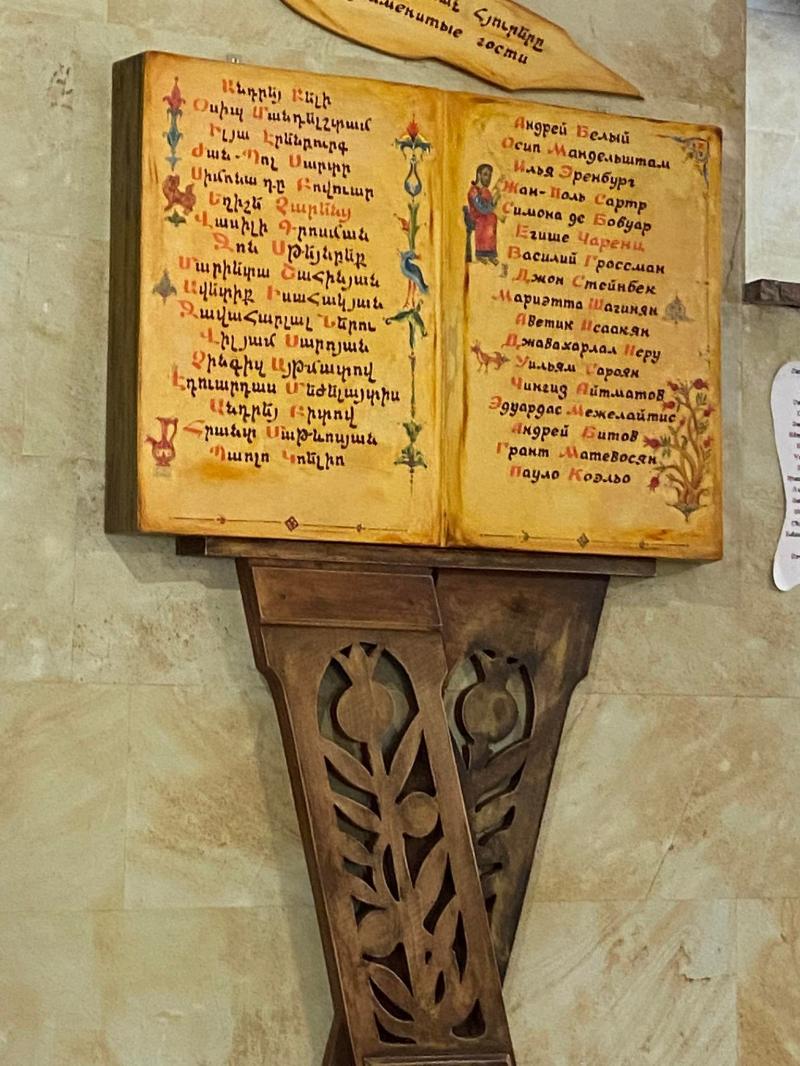 Հյուրերը
гости
Անդրեյ Բելի
Օսիպ Մանդելշտամ
Իլյա Էրենբուրգ
Ժան-Պոլ Սարտր
Սիմոնա դը Բովուար
Եղիշե Չարենց
Վասիլի Գրոսման
Ջոն Սթեյնբեք
Մարիետա Շահինյան
Ավետիք Իսահակյան
Ջավահարլալ Ներու
Վիլյամ Սարոյան
Չինգիզ Այթմատով
Էդուարդաս Մեժելայտիս
Անդրեյ Բիտով
Հրանտ Մաթևոսյան
Պաոլո Կոելիո
Андрей Белый
Осип Мандельштам
Илья Эренбург
Жан-Поль Сартр
Симона де Бовуар
Егише Чаренц
Василий Гроссман
Джон Стейнбек
Мариэтта Шагинян
Аветик Исаакян
Джавахарлал Неру
Уильям Сароян
Чингиз Айтматов
Эдуардас Межелайтис
Андрей Битов
Грант Матевосян
Пауло Коэльо